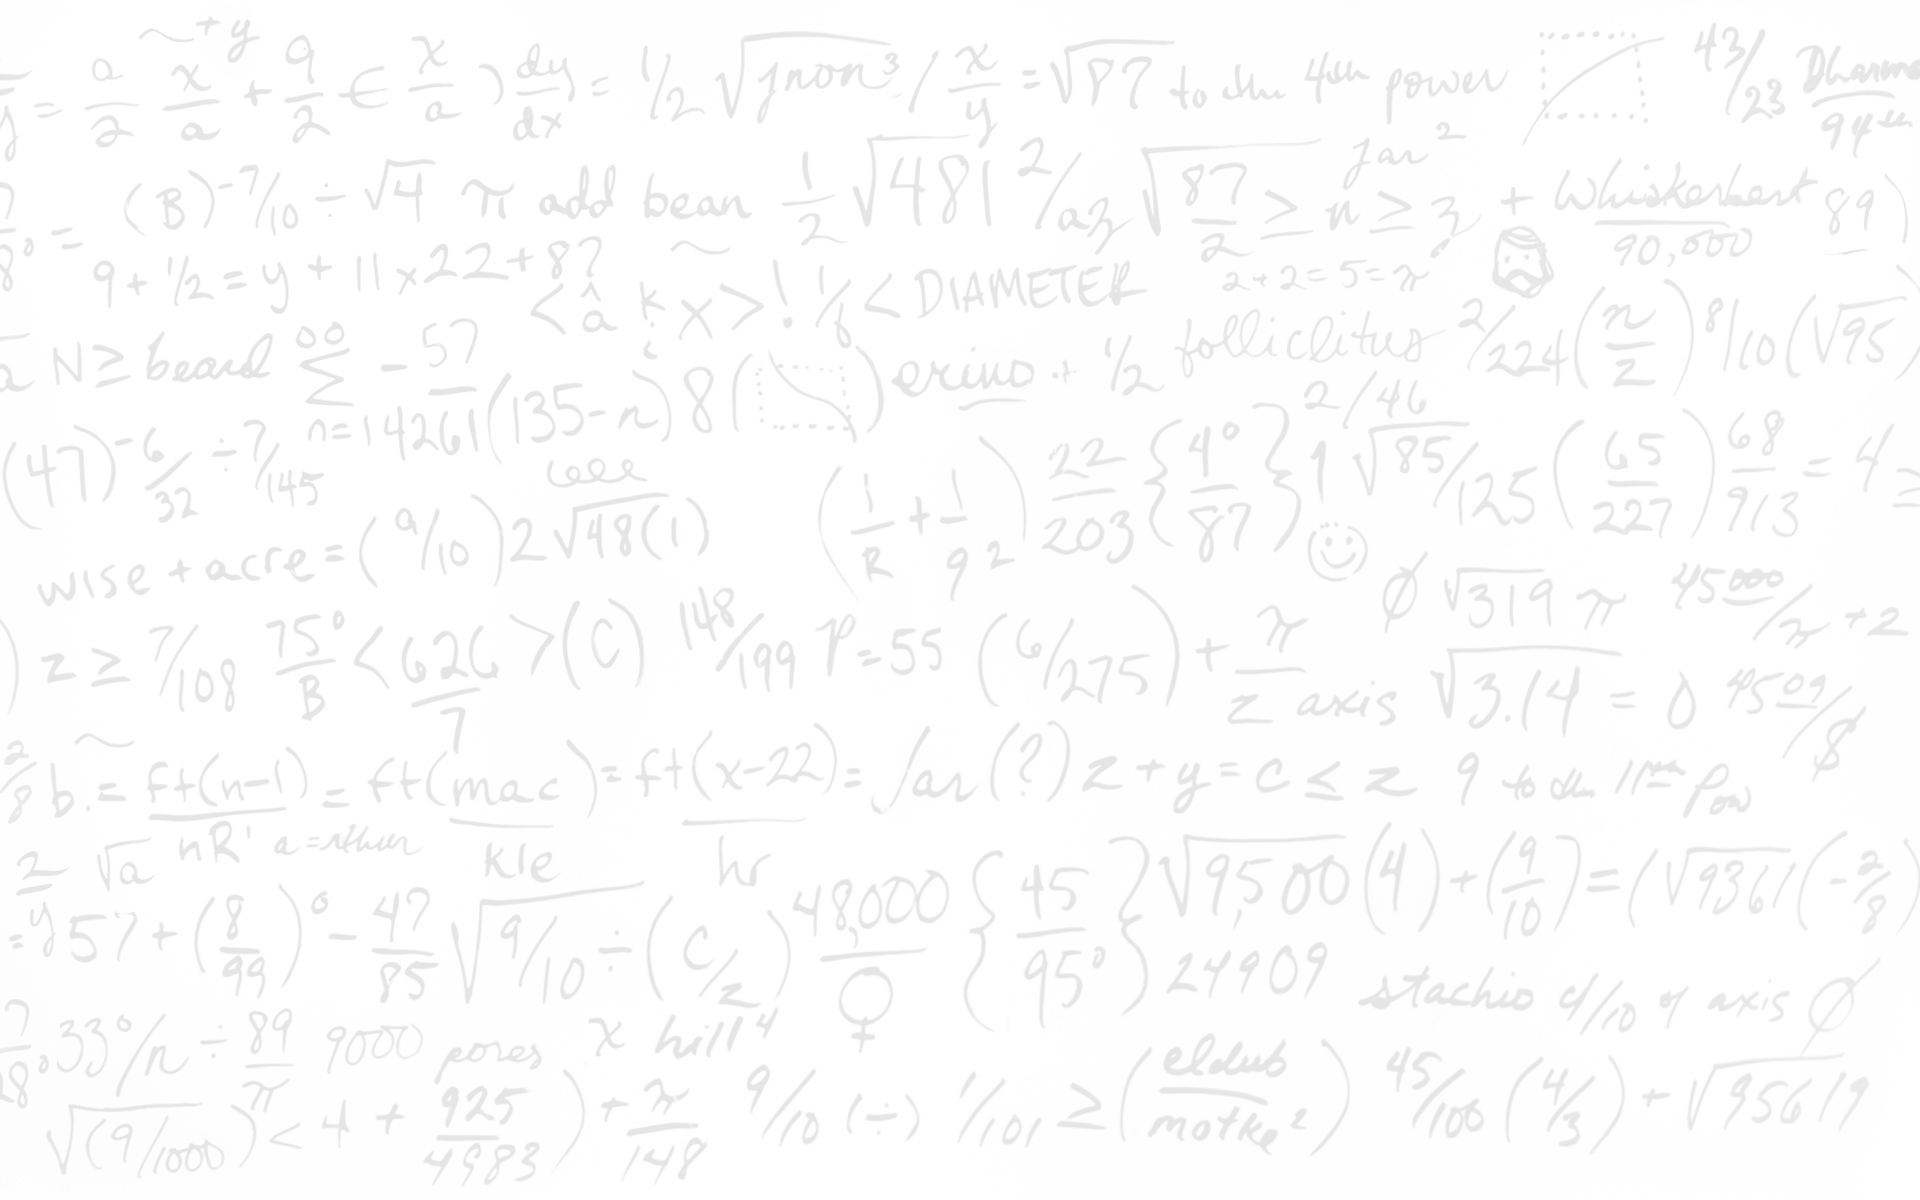 ~ + y
= a/2 x/a + 9/2 € x/a ) dy/dx = 1/2 √ / x/y = √87 to the 4th power 43/23 94th
(B)^-7/10 ÷ √4 π add bean 1/2 √481 2/az √87/2 ≥ n ≥ z jar² + Whiskerbert/90,000 89)
9 + 1/2 = y + 11 x 22 + 8? < â k x > ! 1/6 < DIAMETER 2+2=5=π
N ≥ beard ∞ Σ n=14261 - 57 (135-n) 8 ( ) erino + 1/2 folliclitus 2/224 (n/z) 8/10 (√95
(47)^-6/32 ÷ 7/145 (1/R + 1/9²) 22/203 {4°/87} ! 2/46 √85/125 (65/227) 68/913 = 4 ≥
wise + acre = (9/10) 2 √48(1) ∅ √319 π 45000/n + 2
) z ≥ 7/108 75°/B < 626/7 > (C) 148/199 P = 55 (6/275) + π/z axis √3.14 = 0 4509/8
2/8 b = ft(n-1)/nR' = ft(mac)/kle = ft(x-22)/hr = jar(?) z + y = c ≤ z 9 to the 11 Pow
2/y √a
= 57 + (8/99)° - 47/85 √9/10 ÷ (C/z) 48,000/♀ {45/95°} √9,500 (4) + (9/10) = (√9361 (-2/8)
24909 stachio 9/10 of axis ∅
33°/n ÷ 89/π 9000 pores x hill⁴
√(9/1000) < 4 + 925/4983 ) + π/148 9/10 (÷) 1/101 ≥ (eldub/motke²) 45/100 (4/3) + √95619